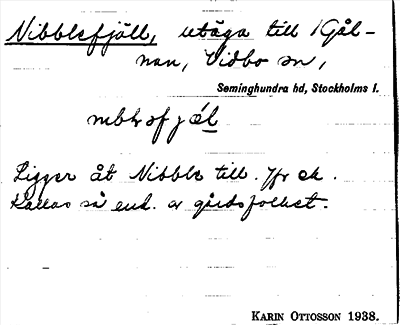 Nibblefjäll, utäga till Gål-
nan, Vidbo sn,
Seminghundra hd, Stockholms l.
Ligger åt Nibble till. Jfr ek.
Kallas så end. av gårdsfolket.
KARIN OTTOSSON 1938.